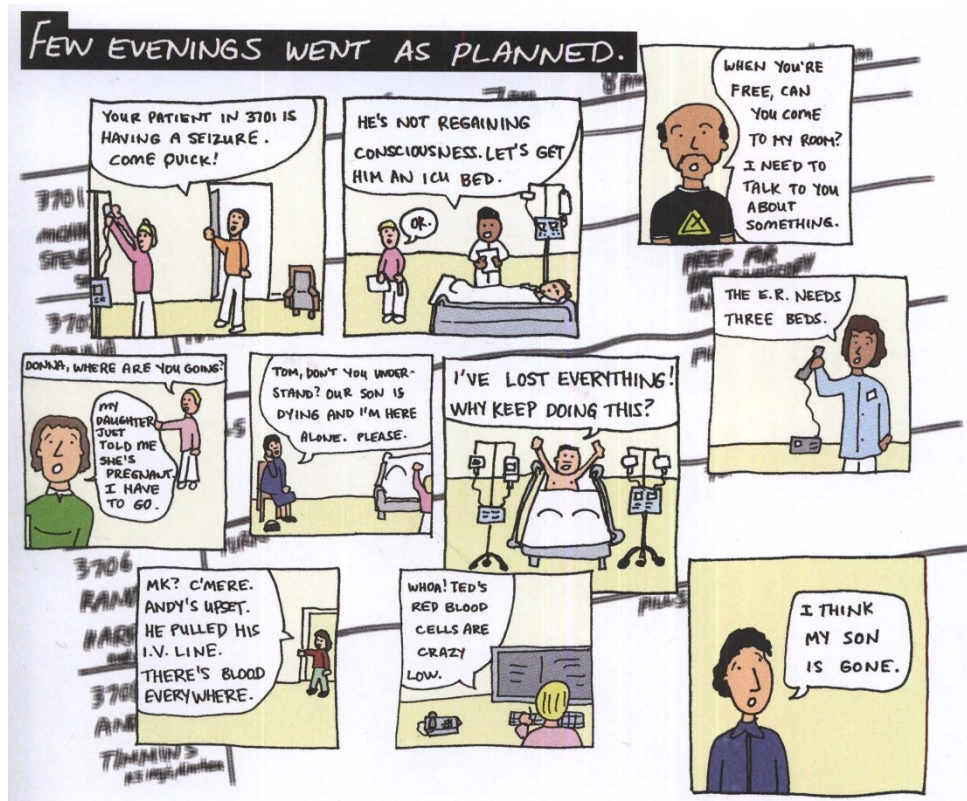 FEW EVENINGS WENT AS PLANNED.
7pm
8pm
YOUR PATIENT IN 3701 IS
HAVING A SEIZURE.
COME QUICK!
HE'S NOT REGAINING
CONSCIOUSNESS. LET'S GET
HIM AN ICU BED.
OK.
WHEN YOU'RE
FREE, CAN
YOU COME
TO MY ROOM?
I NEED TO
TALK TO YOU
ABOUT
SOMETHING.
3701
PREP FOR
THE E.R. NEEDS
THREE BEDS.
DONNA, WHERE ARE YOU GOING?
MY
DAUGHTER
JUST
TOLD ME
SHE'S
PREGNANT.
I HAVE
TO GO.
TOM, DON'T YOU UNDER-
STAND? OUR SON IS
DYING AND I'M HERE
ALONE. PLEASE.
I'VE LOST EVERYTHING!
WHY KEEP DOING THIS?
3706
MK? C'MERE.
ANDY'S UPSET.
HE PULLED HIS
I.V. LINE.
THERE'S BLOOD
EVERYWHERE.
WHOA! TED'S
RED BLOOD
CELLS ARE
CRAZY
LOW.
I THINK
MY SON
IS GONE.
TIMMINS